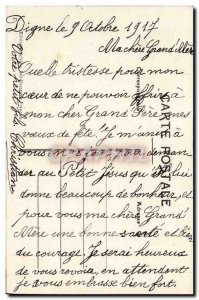 Digne le 9 Octobre 1917
Ma chère Grand'Mère
Quelle tristesse pour mon
cœur de ne pouvoir offrir à
mon cher Grand Père mes
vœux de fête. Je m'unis à
vous
der au Petit Jésus qu'Il lui
donne beaucoup de bonheur, et
pour vous ma chère Grand'
Mère une bonne santé et
du courage. Je serai heureux
de vous revoir, en attendant
je vous embrasse bien fort.
Votre petit fils
CARTE POSTALE